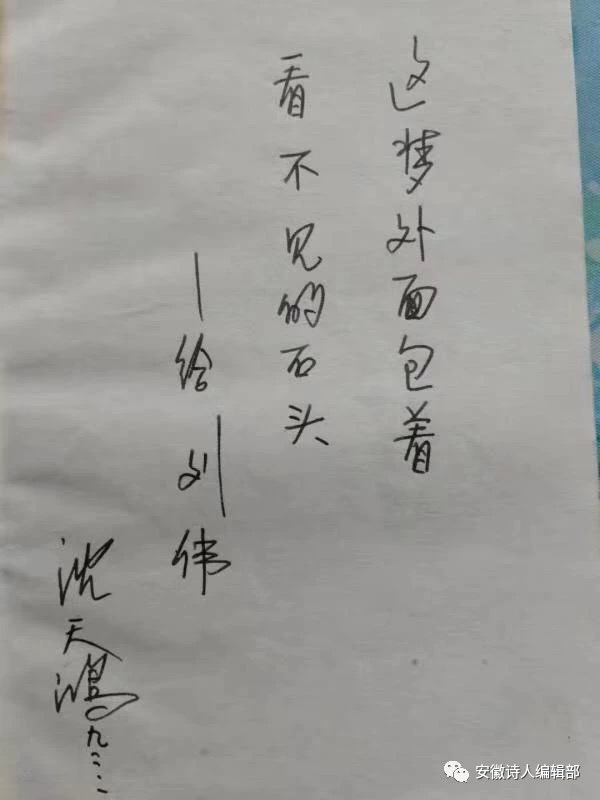 这梦外面包着
看不见的石头
—给刘伟
沈天鸿
安徽诗人编辑部